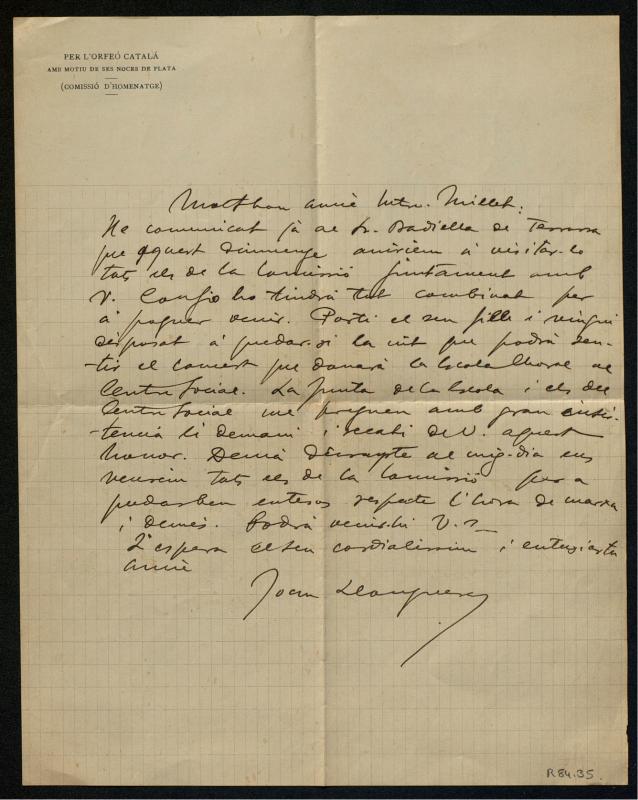 PER L'ORFEÓ CATALÁ
AMB MOTIU DE SES NOCES DE PLATA
(COMISSIÓ D'HOMENATGE)
Molt bon amic Mtre. Millet:
He comunicat já al Sr. Badiella de Terrassa
que aquest diumenge aniriem á visitar-lo
tots els de la Comissió juntament amb
V. Confio ho tindrá tot combinat per
á poguer venir. Porti el seu fill i vingui
disposat á quedar-si la nit que podrá sen-
-tir el concert que donará la Escola Choral al
Centre Social. La Junta de la Escola i els del
Centre Social me preguen amb gran insis-
-tencia li demani i recabi de V. aquest
honor. Demá dimarts al mig-dia ens
veurem tots els de la Comissió per a
quedar ben entesos respecte l'hora de marxa
i demés. Podrá venir-hi V.?
L'espera el seu cordialissim i entusiasta
amic
Joan Llongueras
R 84.35.